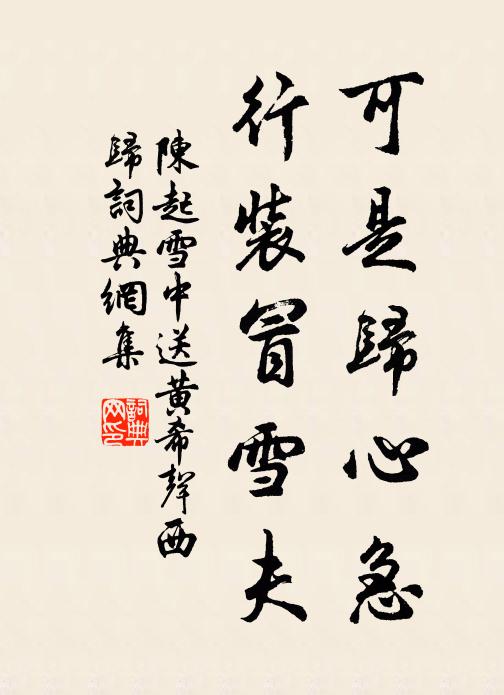 可是歸心急
行裝冒雪夫
陳起雪中送黃希聲西
歸詞典網集
詞典
网印